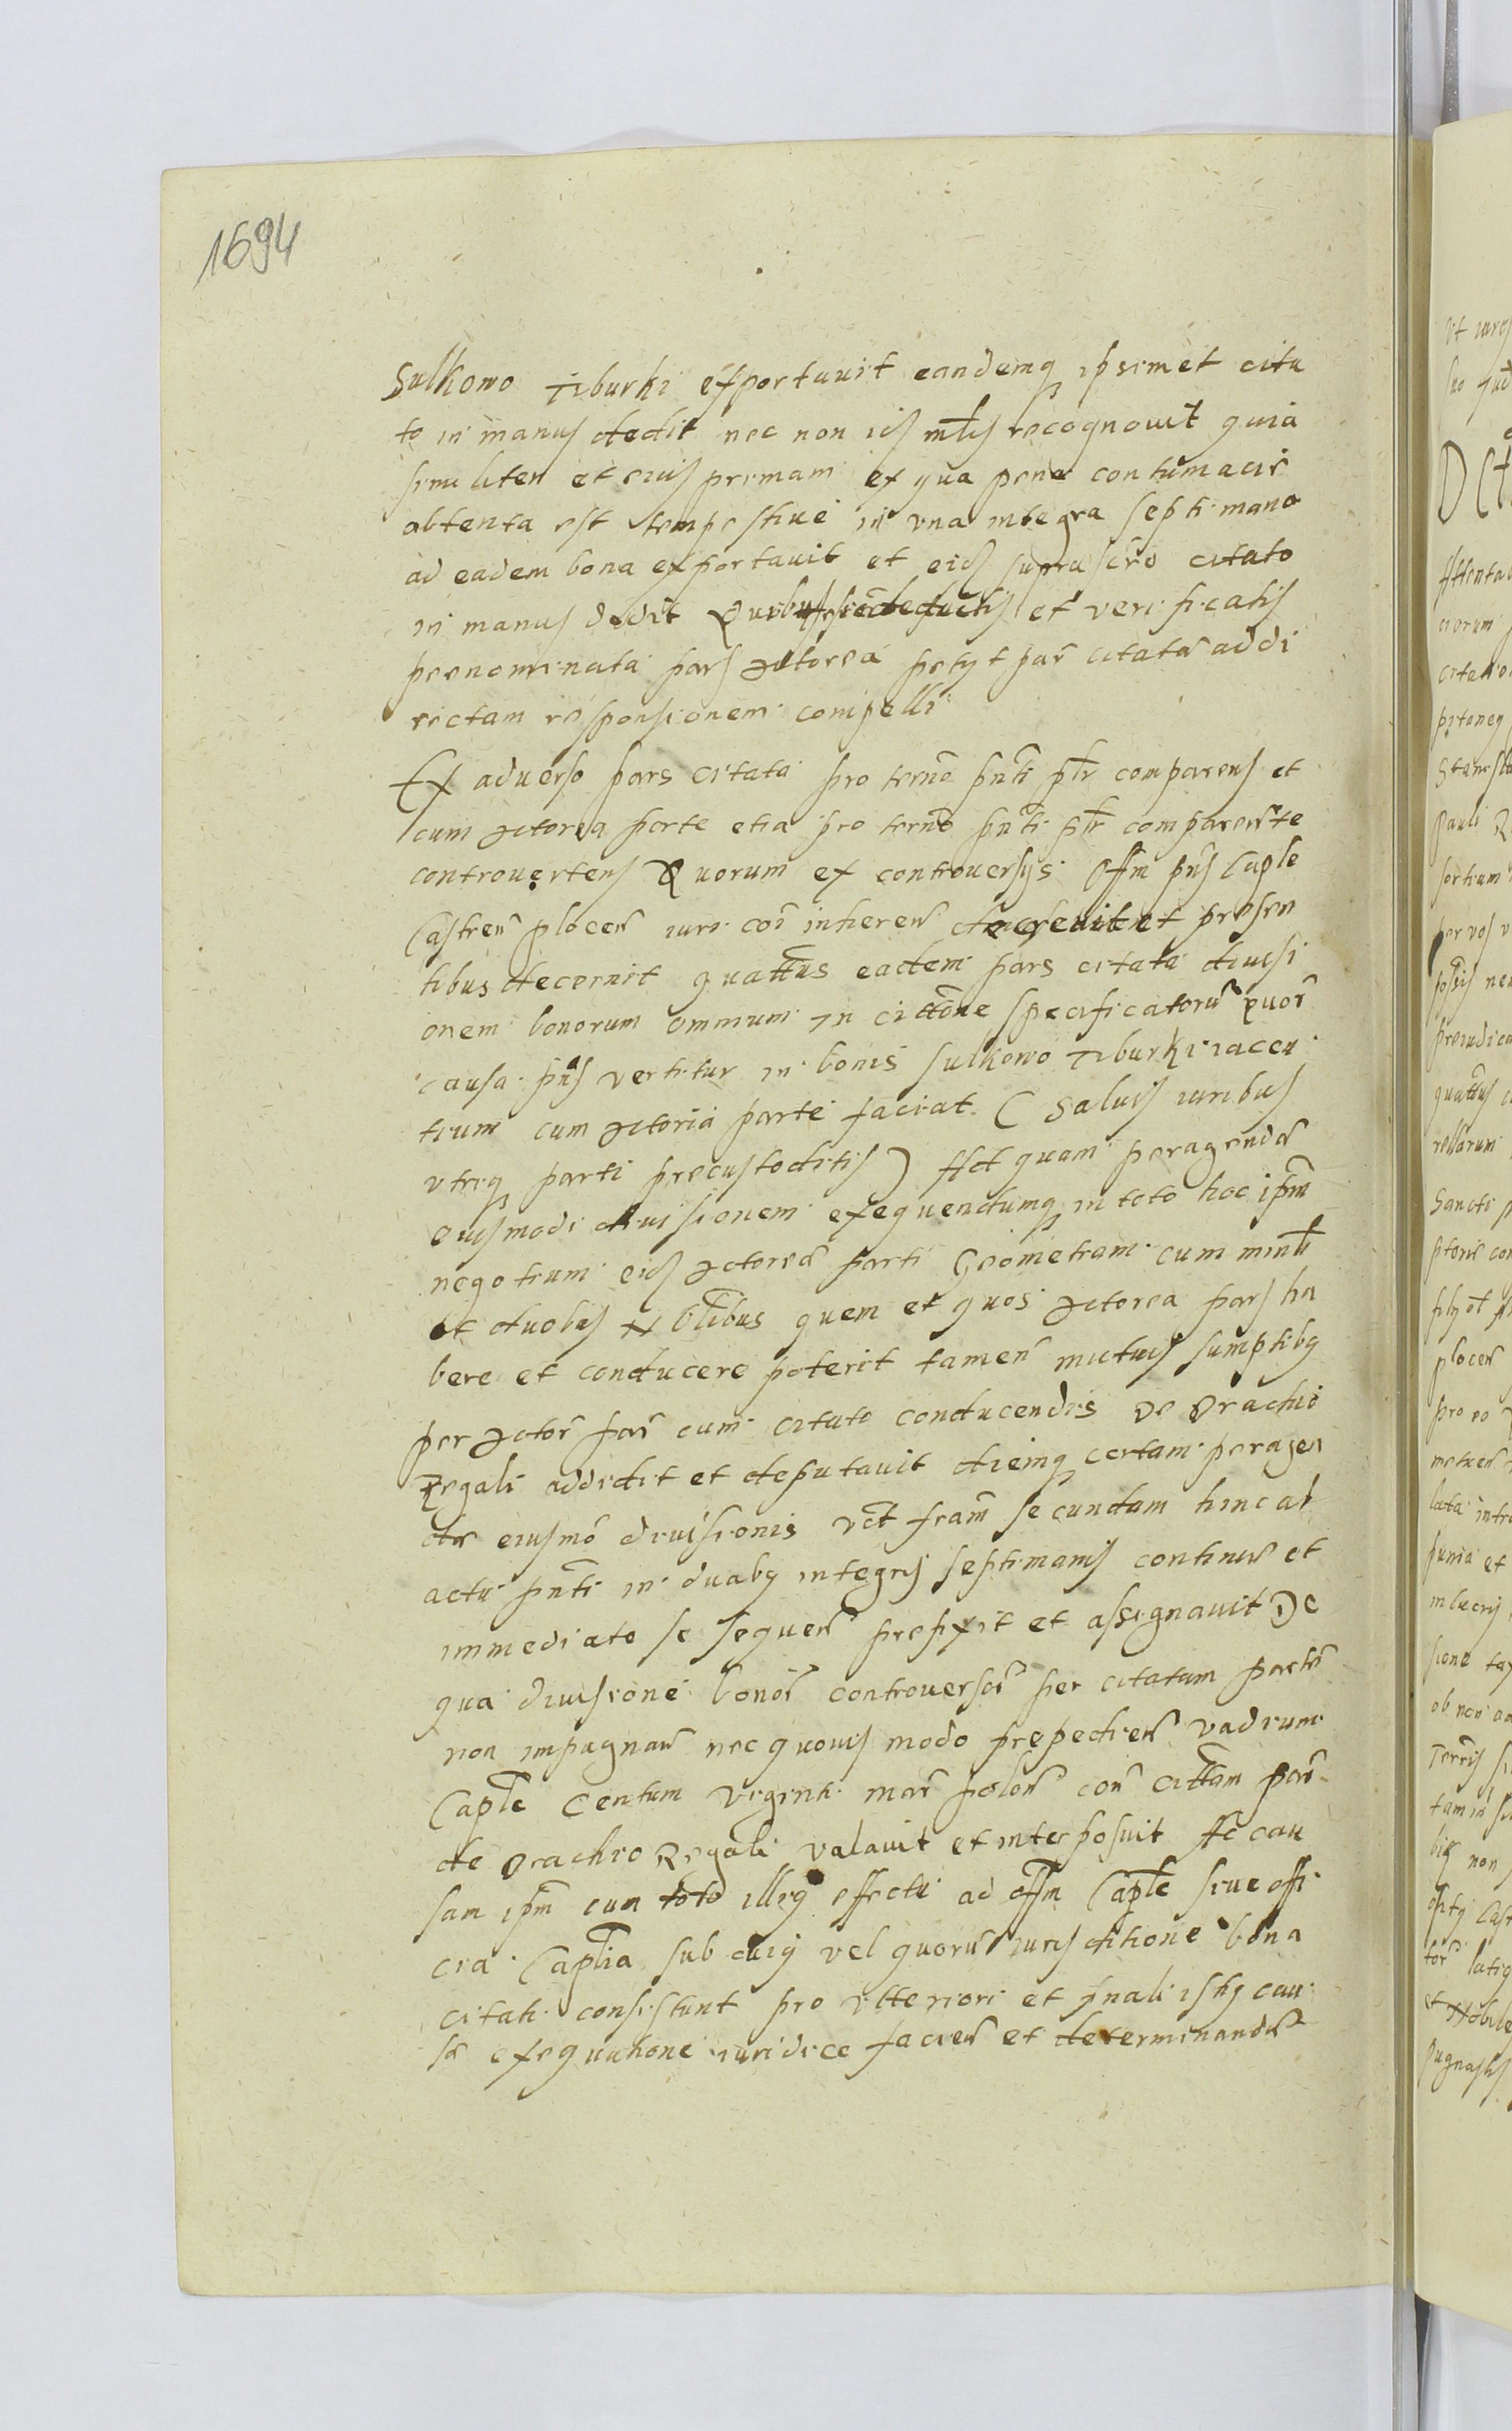 1694
Sulkowo Tiburki exportauit eandemq ipsimet cita
to in manus dedit nec non ids mtls recognouit quia
similiter et eius primam ex qua pena contumacie
obtenta est tempestiue in vna integra septimana
ad eadem bona exportauit et eids suprascro citato
in manus dedit Quibus sic deductis et verificatis
prenominata pars Actorea petyt par citatā addi
rectam responsionem compelli
Ex aduerso pars citata pro termo pnti ptr comparens et
cum Actorea parte etia pro termo pnti ptr comparente
controuertens Quorum ex controuersys Offm pns Caple
Castren plocen iuri coi inheren decreuit et presen
tibus decernit quattus eadem pars citata diuisi
onem bonorum omnium in cittone specificatorū quor
causa pns vertitur in bonis Sulkowo Tiburki iacen
tium cum Actoria parte faciat (Saluis iuribus
vtriq parti precustoditis) Ad quam peragendā
eiusmodi diuisionem exequendumq in toto hoc ipm
negotium eids Actoreā parti Geometram cum minli
et duobus Nblibus quem et quos Actorea pars ha
bere et conducere poterit tamen mutuis sumptibq
per Actor par cum citato conducendis De Brachio
Regali addidit et deputauit diemq certam peragen
dā eiusmo diuisionis vct fram secundam hinc ab
actu pnti in duabq integris septimanis continuē et
immediato se sequen prefixit et assignauit De
qua diuisione bonor controuersor per citatam partē
non impugnan nec quouis modo prepedien vadium
Caple Centum viginti mar polon con cittam par
de Brachio Regali valauit et interposuit Ac cau
sam ipm cum toto illiq effectu ad offm Caple siue offi
cia Caplia sub cuiq vel quorū iurisditione bona
citati consistunt pro vlteriori et finali istiq cau
sē exequutione iuridice facien et determinandā